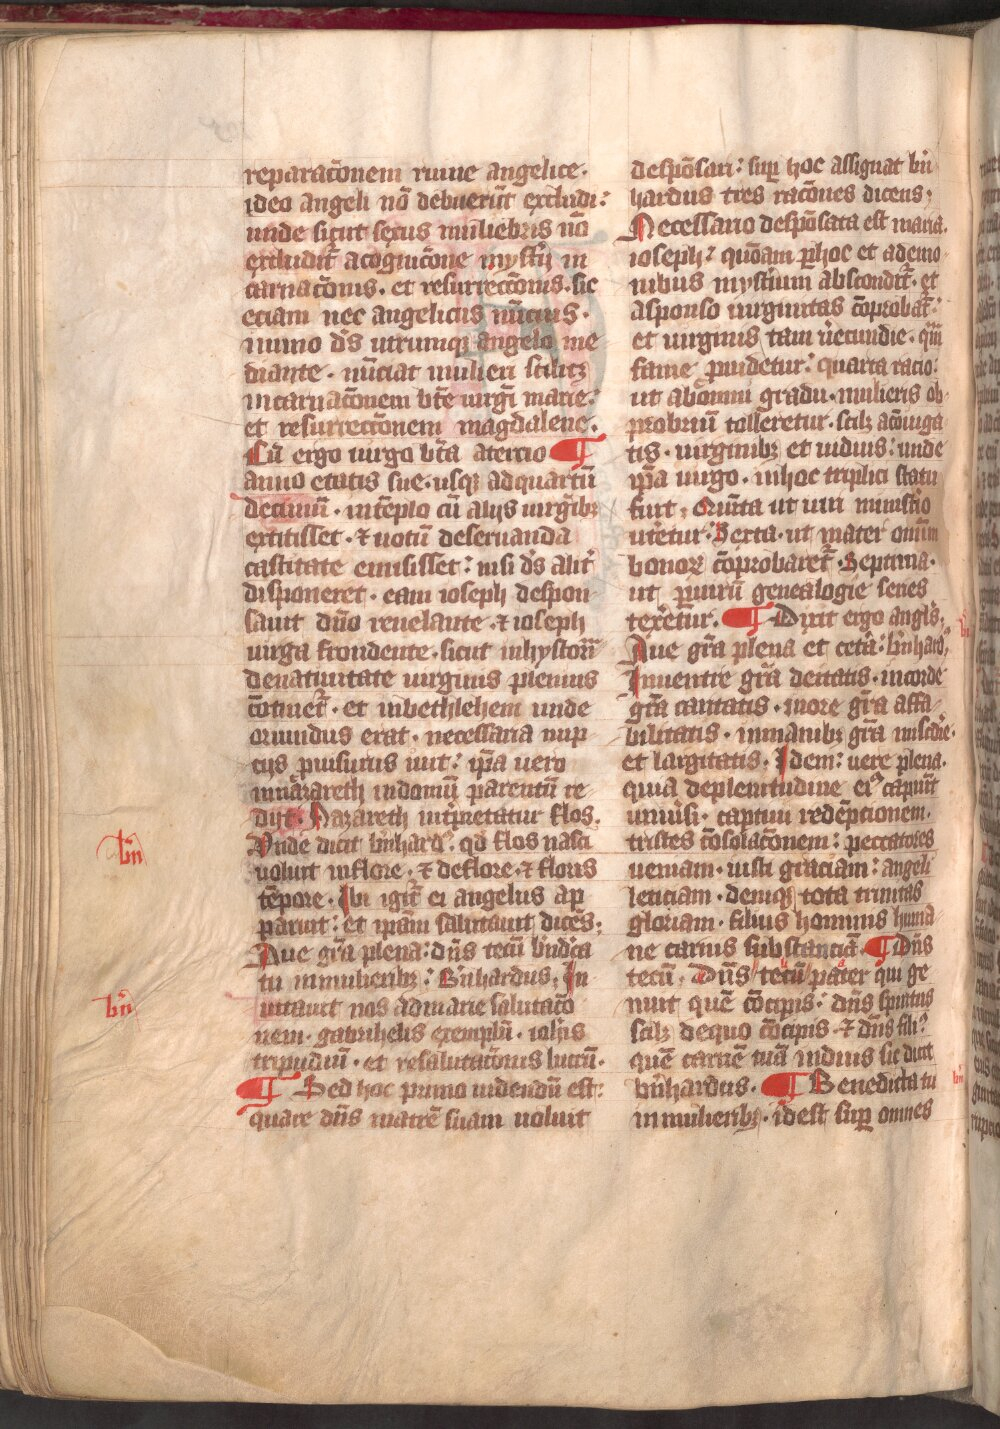 reparac̄onem ruine angelice·
ideo angeli nō debuerūt excludi:
unde sicut sexus muliebris nō
excludit᷑ acognic̄one mysťij in
carnac̄onis· et resurrecc̄onis· sic
eciam nec angelicus nūcius·
nūmo d̄s utrumqꝫ angelo me
diante· nūciat mulieri scilicꝫ
incarnac̄onem bt̄e uirgī marie·
et resurrecc̄onem magdalene·
Cū ergo uirgo bt̄a atercio ¶
anno etatis sue· usqꝫ adquartū
decimū· intēplo cū alijs uirgīibꝫ
extitisset· ⁊ uotū deseruanda
castitate emisisset: nisi d̄s alit̾
disponeret· eam ioseph despon
sauit dn̄o reuelante· ⁊ ioseph
uirga frondente· sicut inhystor̄
denatiuitate uirginis plenius
c̄otinet᷑· et inbethlehem unde
oriundus erat· necessaria nup
cijs p̱uisurus iuit: ip̄a uero
innazareth indomū parentū re
dijt· Nazareth int̾pretatur flos·
Vnde dicit b̄nhard᷒· qd̄ flos nasci
uoluit inflore· ⁊ deflore· ⁊ floris
tēpore· Ibi igit᷑ ei angelus ap
paruit: et ip̄am salutauit dicēs;
Aue gr̄a plena: dn̄s tecū b̄ndc̄a
tu inmulieribꝫ: B̄nhardus; In
uitauit nos admarie salutac̄o
nem· gabrihelis exemplū· ioh̄is
tripudiū· et resalutac̄onis lucrū·
¶ Sed hoc primo uidendū est:
quare dn̄s matrē suam uoluit
despōsari: sup̱ hoc assignat b̄n
hardus tres rac̄ones dicens;
Necessario despōsata est maria·
ioseph: quōam p̱hoc et ademo
nibus mysťium abscondit᷑· et
asponso uirginitas c̄oprobat᷑·
et uirginis tam u̾ecundie· q̄m
fame p̱uidetur: quarta racio:
ut abōmni gradu· mulieris ob
probriū tolleretur· scilꝫ ac̄oiuga
tis· uirginibꝫ et uiduis: unde
ip̄a uirgo· inhoc triplici statu
fuit; Quīta ut uiri minist̾io
ut̾etur: Sexta· ut mater om̄iū
bonoꝝ c̄oprobaret᷑· Septima·
ut p̱uirū genealogie series
tex̾etur· ¶ Dixit ergo angl̄s;
Aue gr̄a plena et cet̾a: b̄nhard᷒;
Inuentre gr̄a deitatis· incorde
gr̄a caritatis· inore gr̄a affa
bilitatis· inmanibꝫ gr̄a mis̄cdie·
et largitatis· Idem: uere plena·
quia deplenitudine ei᷒ capiūt
uniūsi· captiui redēpcionem·
tristes c̄osolac̄onem: peccatores
ueniam· iusti graciam: angeli
leticiam· deniqꝫ tota trinitas
gloriam· filius hominis huma
ne carnis substanciā· ¶ Dn̄s
tecū· Dn̄s tecū pater qui ge
nuit quē c̄ocipis: dn̄s spiritus
scilꝫ dequo c̄ocipis· ⁊ dn̄s fili᷒
quē carnē tuā induis sic dicit
b̄nhardus· ¶ Benedicta tu
inmulieribꝫ· id̄est sup̱ omnes
b̄n
b̄n